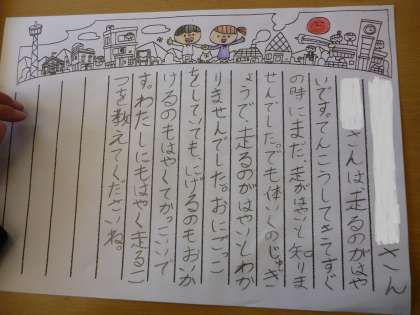 さん
さんは走るのがはや
いです。てんこうしてきてすぐ
の時にまだ、走がはやいと知りま
せんでした。でも体いくのじゅぎ
ょうで、走るのがはやいとわか
りませんでした。おにごっこ
をしていても、にげるのもおいか
けるのもはやくてかっこいいで
す。わたしにもはやく走るこ
つを教えてくださいね。